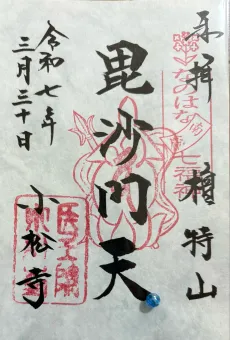 奉拝 檀特山
なのはな
七福神
毘沙門天
小松寺
令和七年
三月三十日